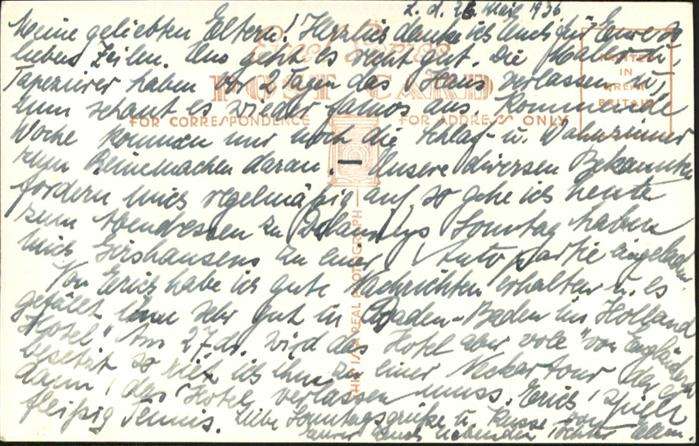 2. d. 26. März 1936
Meine geliebten Eltern! Herzlich danke ich Euch für Eure so
lieben Zeilen. Uns geht es recht gut. Die Maler u.
Tapezierer haben vor 2 Tagen das Haus verlassen u.
nun schaut es wieder famos aus. Kommende
Woche kommen nur noch die Schlaf- u. Wohnzimmer
zum Reinemachen daran. – Unsere diversen Bekannten
fordern uns regelmäßig auf, so gehe ich heute
zum Abendessen zu Sonntag haben
uns zu einer Autopartie eingeladen.
Von Erich habe ich gute Nachrichten erhalten u. es
gefällt ihm sehr gut in Baden-Baden im "Holland
Hotel". Am 27. wird das Hotel aber voll von Engländern
besetzt so riet ich ihm zu einer Neckartour der er
dann das Hotel verlassen muss. Erich spielt
fleißig Tennis. Liebe Sonntagsgrüße u. Küsse von
Eurer Euch liebenden Tochter
POST CARD
FOR CORRESPONDENCE
FOR ADDRESS ONLY
PRINTED
IN
GREAT
BRITAIN
THIS IS A REAL PHOTOGRAPH